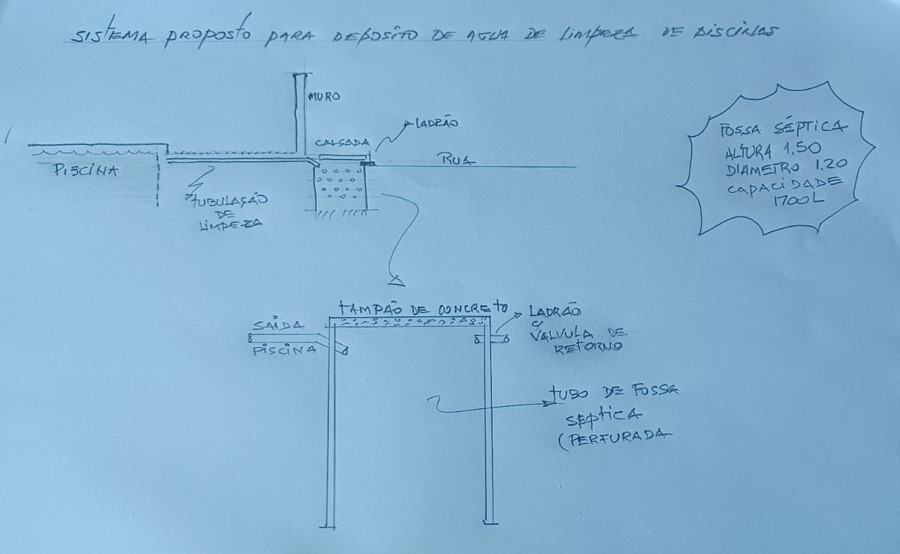 SISTEMA PROPOSTO PARA DEPOSITO DE AGUA DE LIMPEZA DE PISCINAS
MURO
CALÇADA
LADRÃO
RUA
PISCINA
TUBULAÇÃO
DE
LIMPEZA
FOSSA SÉPTICA
ALTURA 1.50
DIAMETRO 1.20
CAPACIDADE
1700L
TAMPÃO DE CONCRETO
SAÍDA
PISCINA
LADRÃO
VALVULA DE
RETORNO
TUBO DE FOSSA
SÉPTICA
(PERFURADA